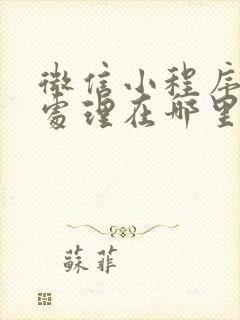 微信小程序
處理在哪里
蘇菲